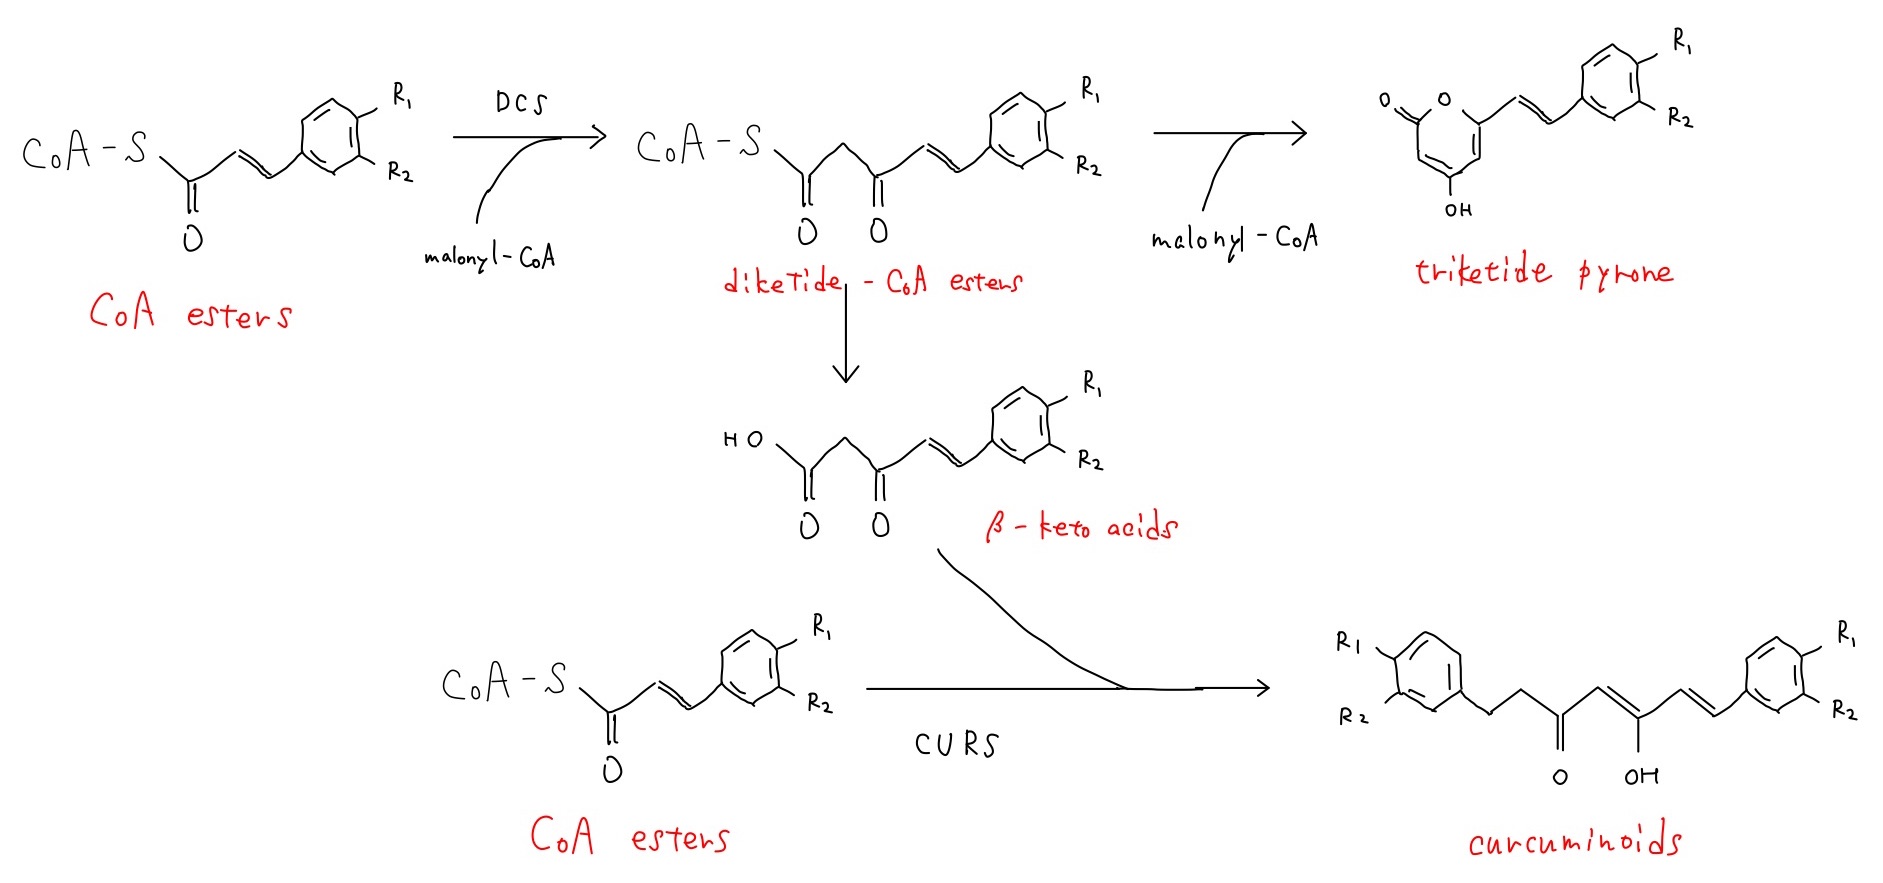 CoA-S
O
R1
R2
CoA esters
DCS
malonyl-CoA
CoA-S
O
O
R1
R2
diketide-CoA esters
malonyl-CoA
O
O
OH
R1
R2
triketide pyrone
HO
O
O
R1
R2
β-keto acids
CoA-S
O
R1
R2
CoA esters
CURS
R1
R2
O
OH
R1
R2
curcuminoids